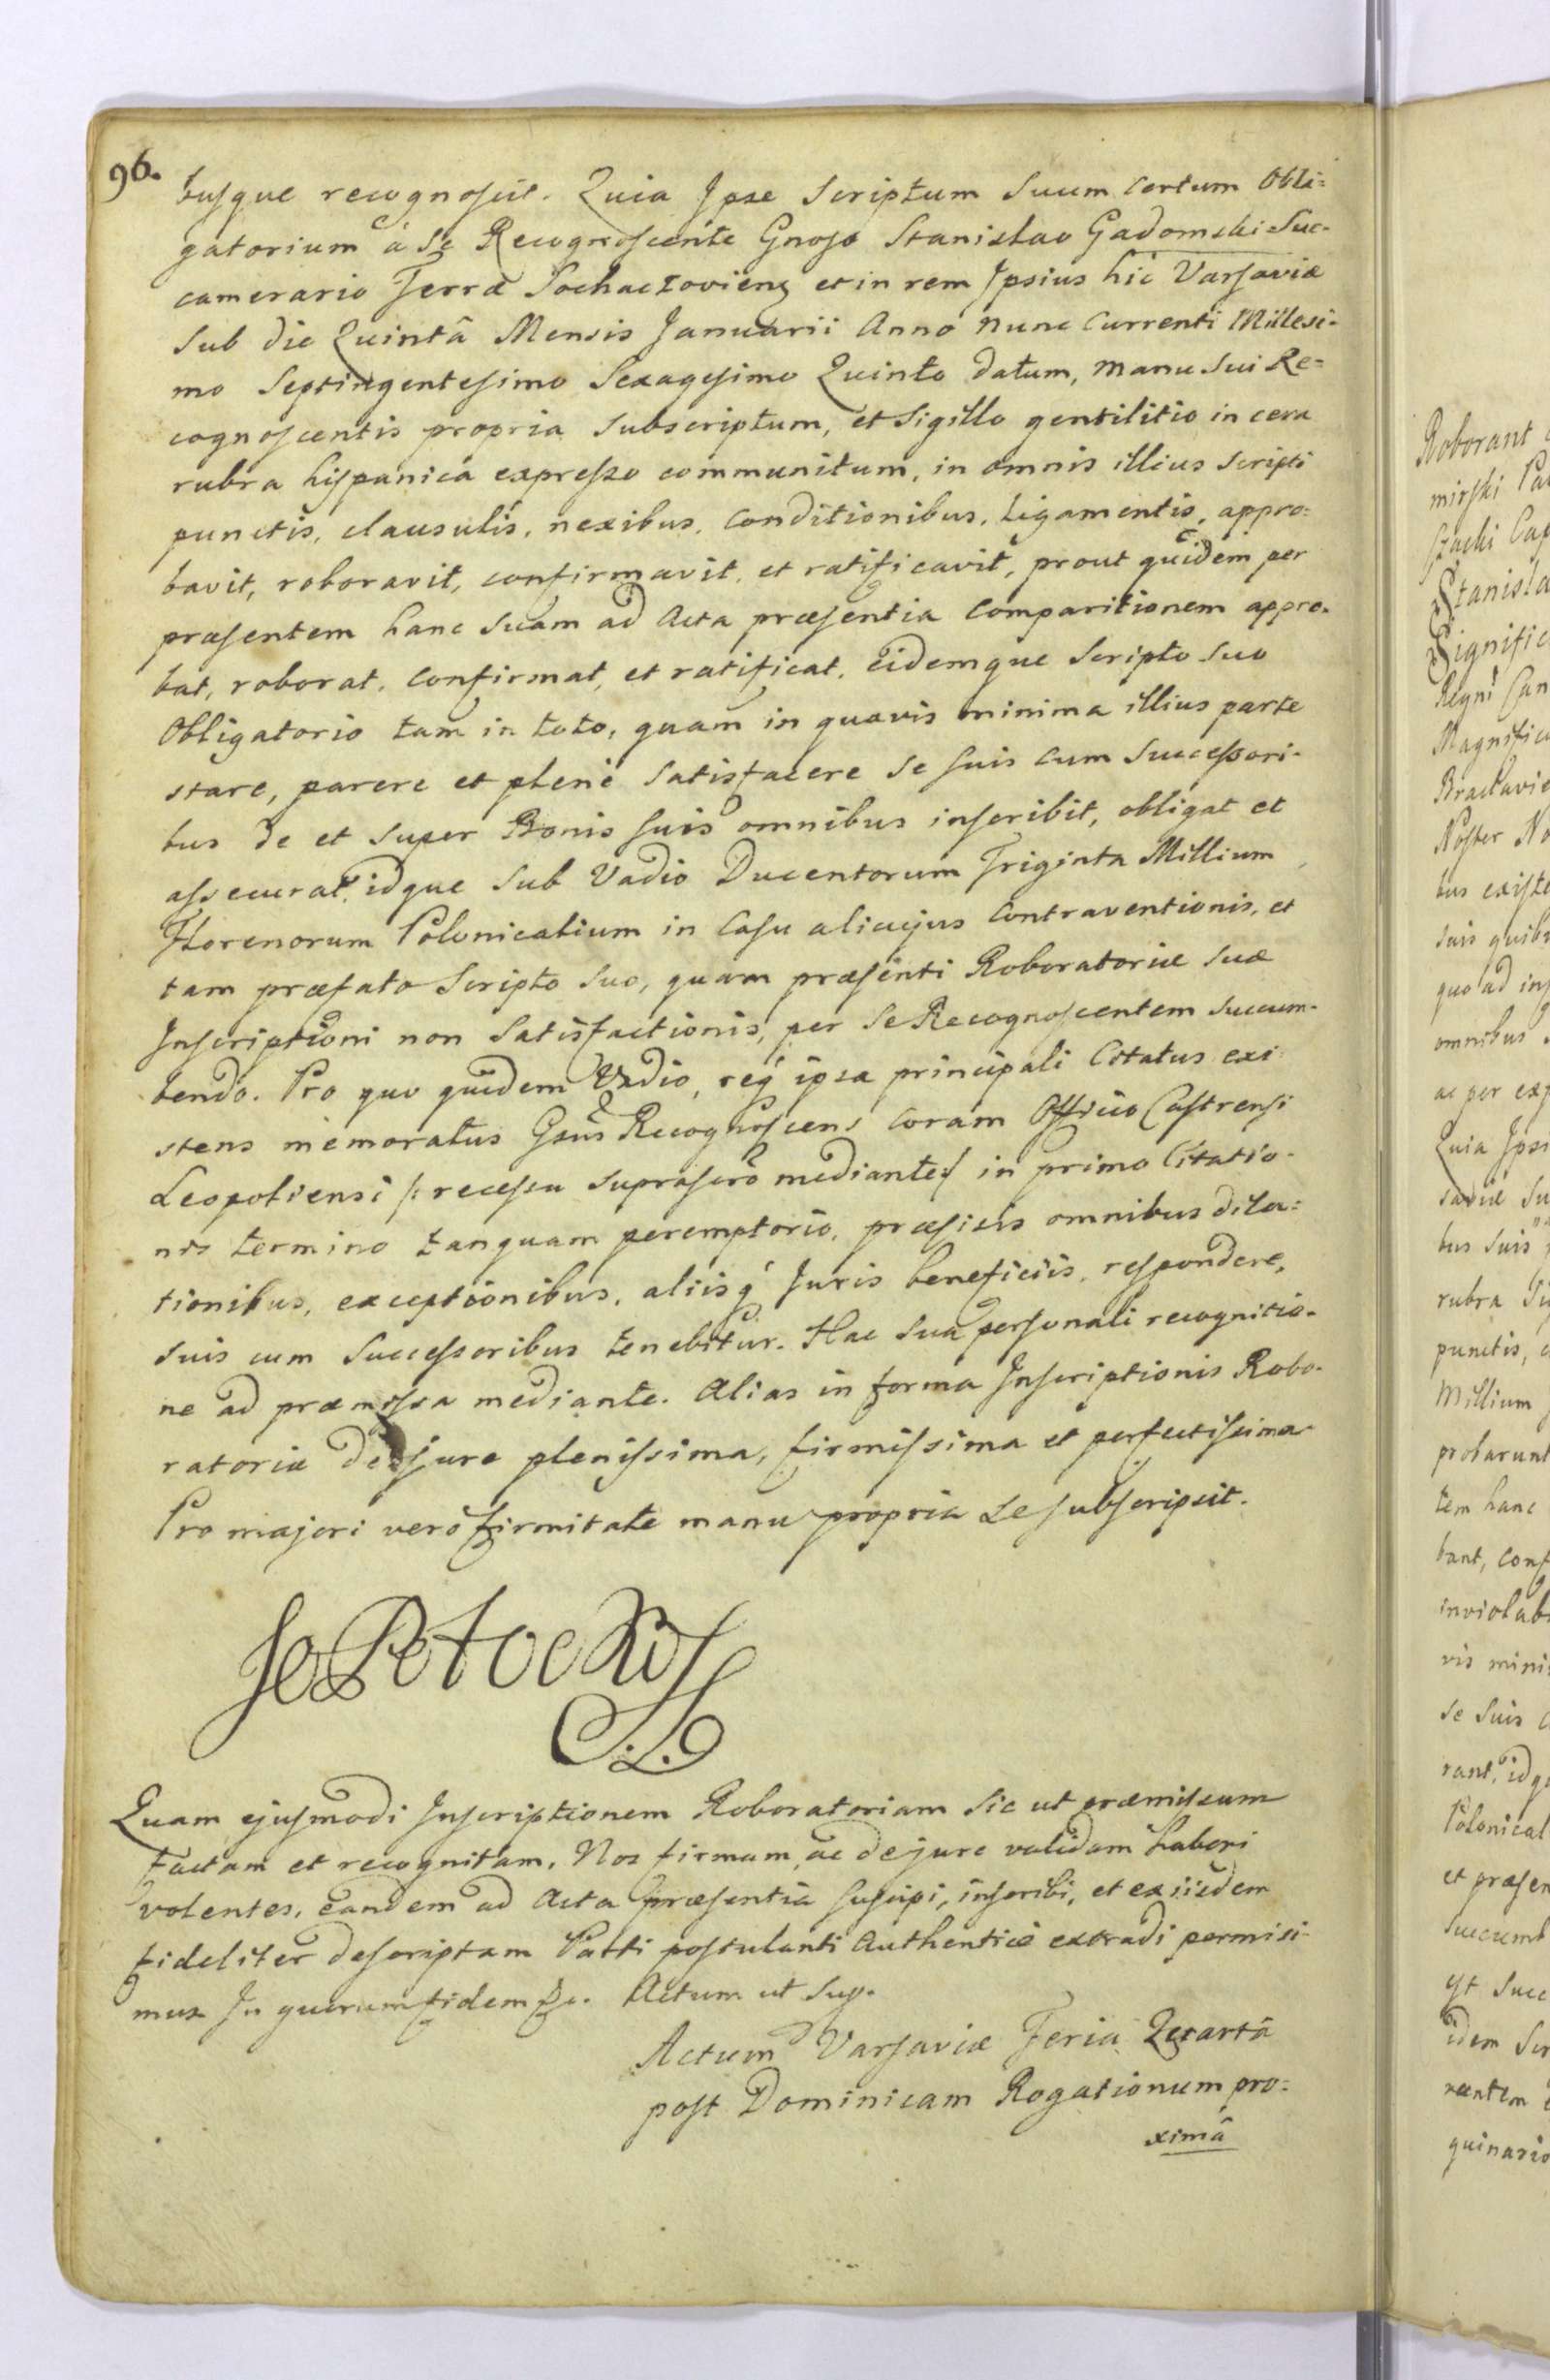 96.
busque recognoscit. Quia Ipse Scriptum Suum Certum Obli=
gatorium à Se Recognoscente Gnoso Stanislao Gadomski Suc-
camerario Terræ Sochaczovieng et in rem Ipsius hic Varsaviæ
Sub die Quintâ Mensis Januarii Anno nunc Currenti Millesi-
mo Septingentesimo Sexagesimo Quinto datum, manu Sui Re=
cognoscentis propria Subscriptum, et Sigillo gentilitio in cera
rubra hispanica expresso communitum, in omnis illius Scripti
punctis, clausulis, nexibus, Conditionibus, Ligamentis, appro=
bavit, roboravit, confirmavit, et ratificavit, prout quidem per
præsentem hanc Suam ad Acta præsentia Comparitionem appro-
bat, roborat, Confirmat, et ratificat, Eidemque Scripto Suo
Obligatorio tam in toto, quam in quavis minima illius parte
stare, parere et plenè Satisfacere Se Suis Cum Successori-
bus de et Super Bonis Suis omnibus inscribit, obligat et
assecurat, idque Sub Vadio Ducentorum Triginta Millium
Florenorum Polonicalium in Casu alicujus Contraventionis, et
tam præfato Scripto Suo, quam præsenti Roboratoriæ Suæ
Inscriptioni non Satisfactionis, per Se Recognoscentem Succum-
bendo. Pro quo quidem Vadio, reqʹ ipsa principali Citatus exi-
stens memoratus Gsus Recognoscens Coram Officio Castrensi
Leopoliensi /: recessu suprascrō mediante :/ in primo Citatio-
nis termino tanquam peremptorio, præsisis omnibus dila=
tionibus, exceptionibus, aliisqʹ Juris beneficiis, respondere,
Suis cum Successoribus tenebitur. Hac Sua personali recognitio-
ne ad præmissa mediante. Alias in forma Inscriptionis Robo-
ratoriæ de Jure plenissima, firmissima et perfectissima
Pro majori verò firmitate manu propria Se subscripsit.
Potocki
Quam ejusmodi Inscriptionem Roboratoriam Sic ut præmissum
factam et recognitam, Nos firmam, ac de jure validam haberi
volentes, eandem ad Acta præsentia suscipi, inscribi, et ex iisdem
fideliter descriptam Parti postulanti Authenticè extradi permisi-
mus In quorum fidem &c. Actum ut Sup.
Actum Varsaviæ Feria Quartâ
post Dominicam Rogationum pro=
ximâ
Roborant
mirski
Stanisla
Signific
Regni Can
Magnific
Braclavie
Noster No
bus existe
suis quib
quo ad ins
omnibus
ac per exp
Quia Ipsi
saviæ Su
bus Suis
rubra
punctis,
Millium
probarunt
tem hanc
bant, conf
inviolab
vis mini
se Suis
rant, idq
Polonical
et præsen
Succumb
idem Scr
quinario